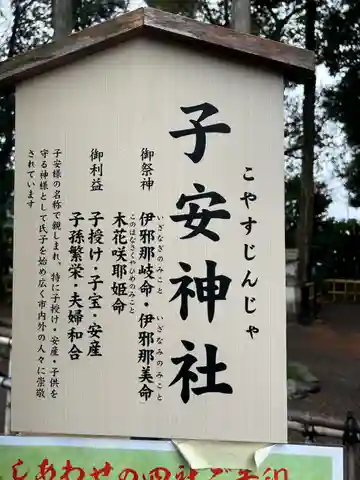 こやすじんじゃ
子安神社
御祭神
いざなぎのみこと いざなみのみこと
伊邪那岐命・伊邪那美命
このはなさくやひめのみこと
木花咲耶姫命
御利益
子授け・子宝・安産
子孫繁栄・夫婦和合
子安様の名称で親しまれ、特に子授け・安産・子供を
守る神様として氏子を始め広く市内外の人々に崇敬
されています
しあわせの四社ご朱印